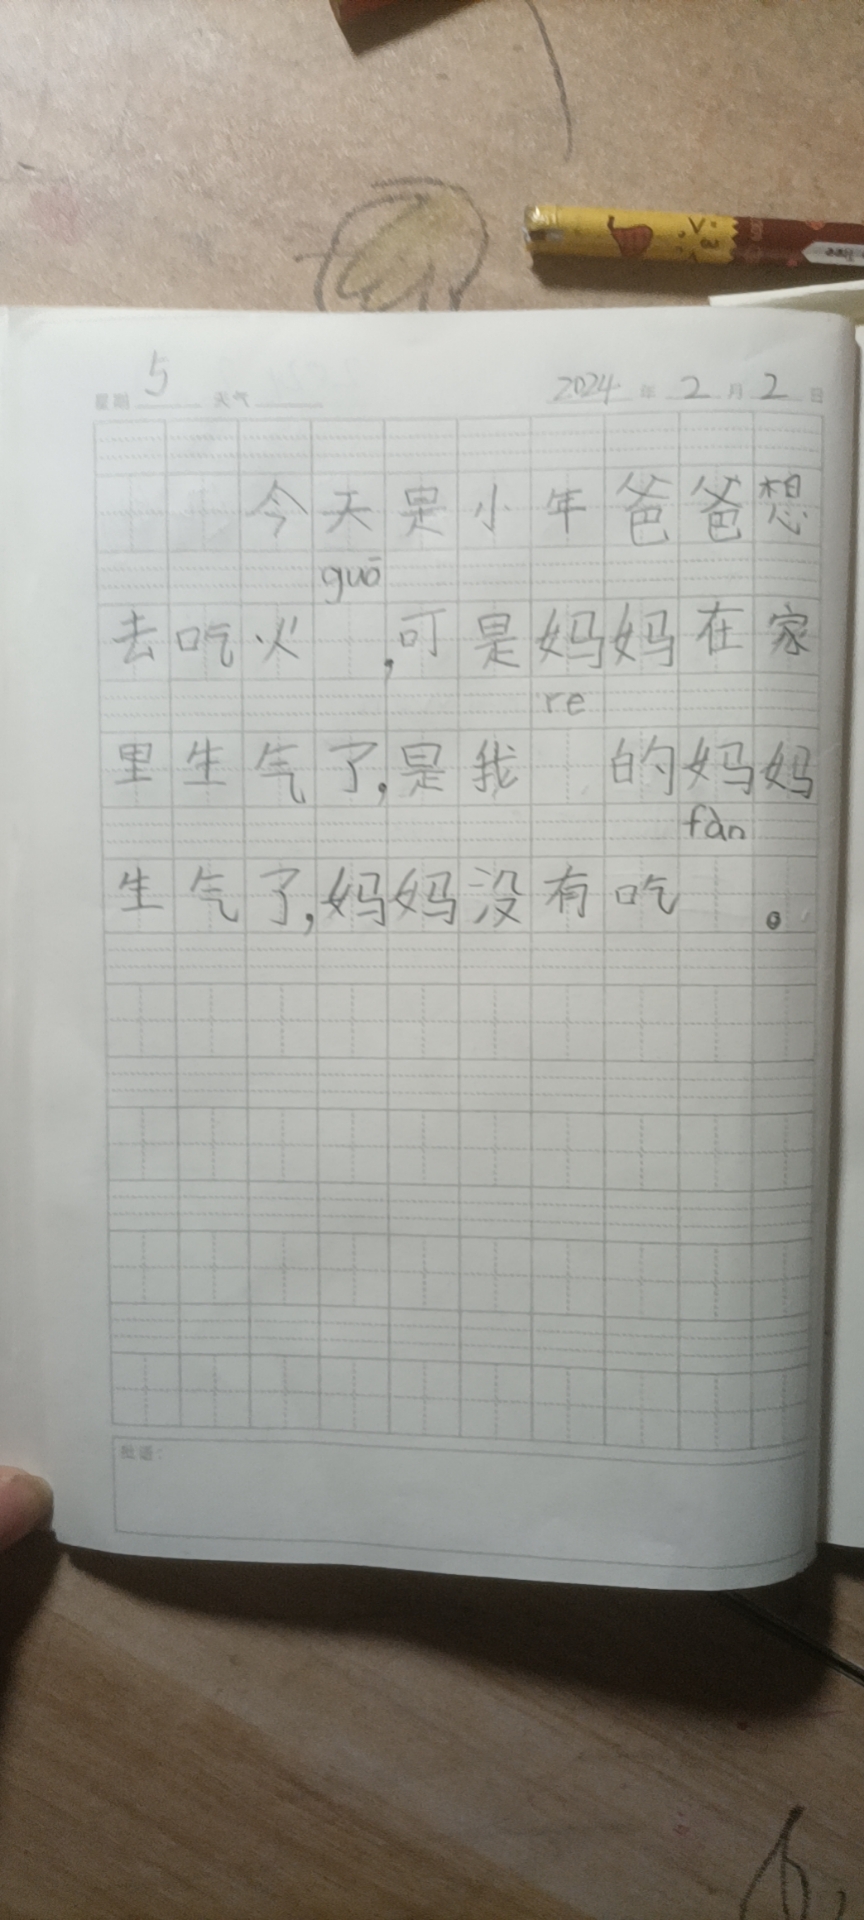 星期 5 天气 2024 年 2 月 2 日
今天是小年爸爸想
guō
去吃火 ,可是妈妈在家
re
里生气了,是我 的妈妈
fàn
生气了,妈妈没有吃 。
批语: